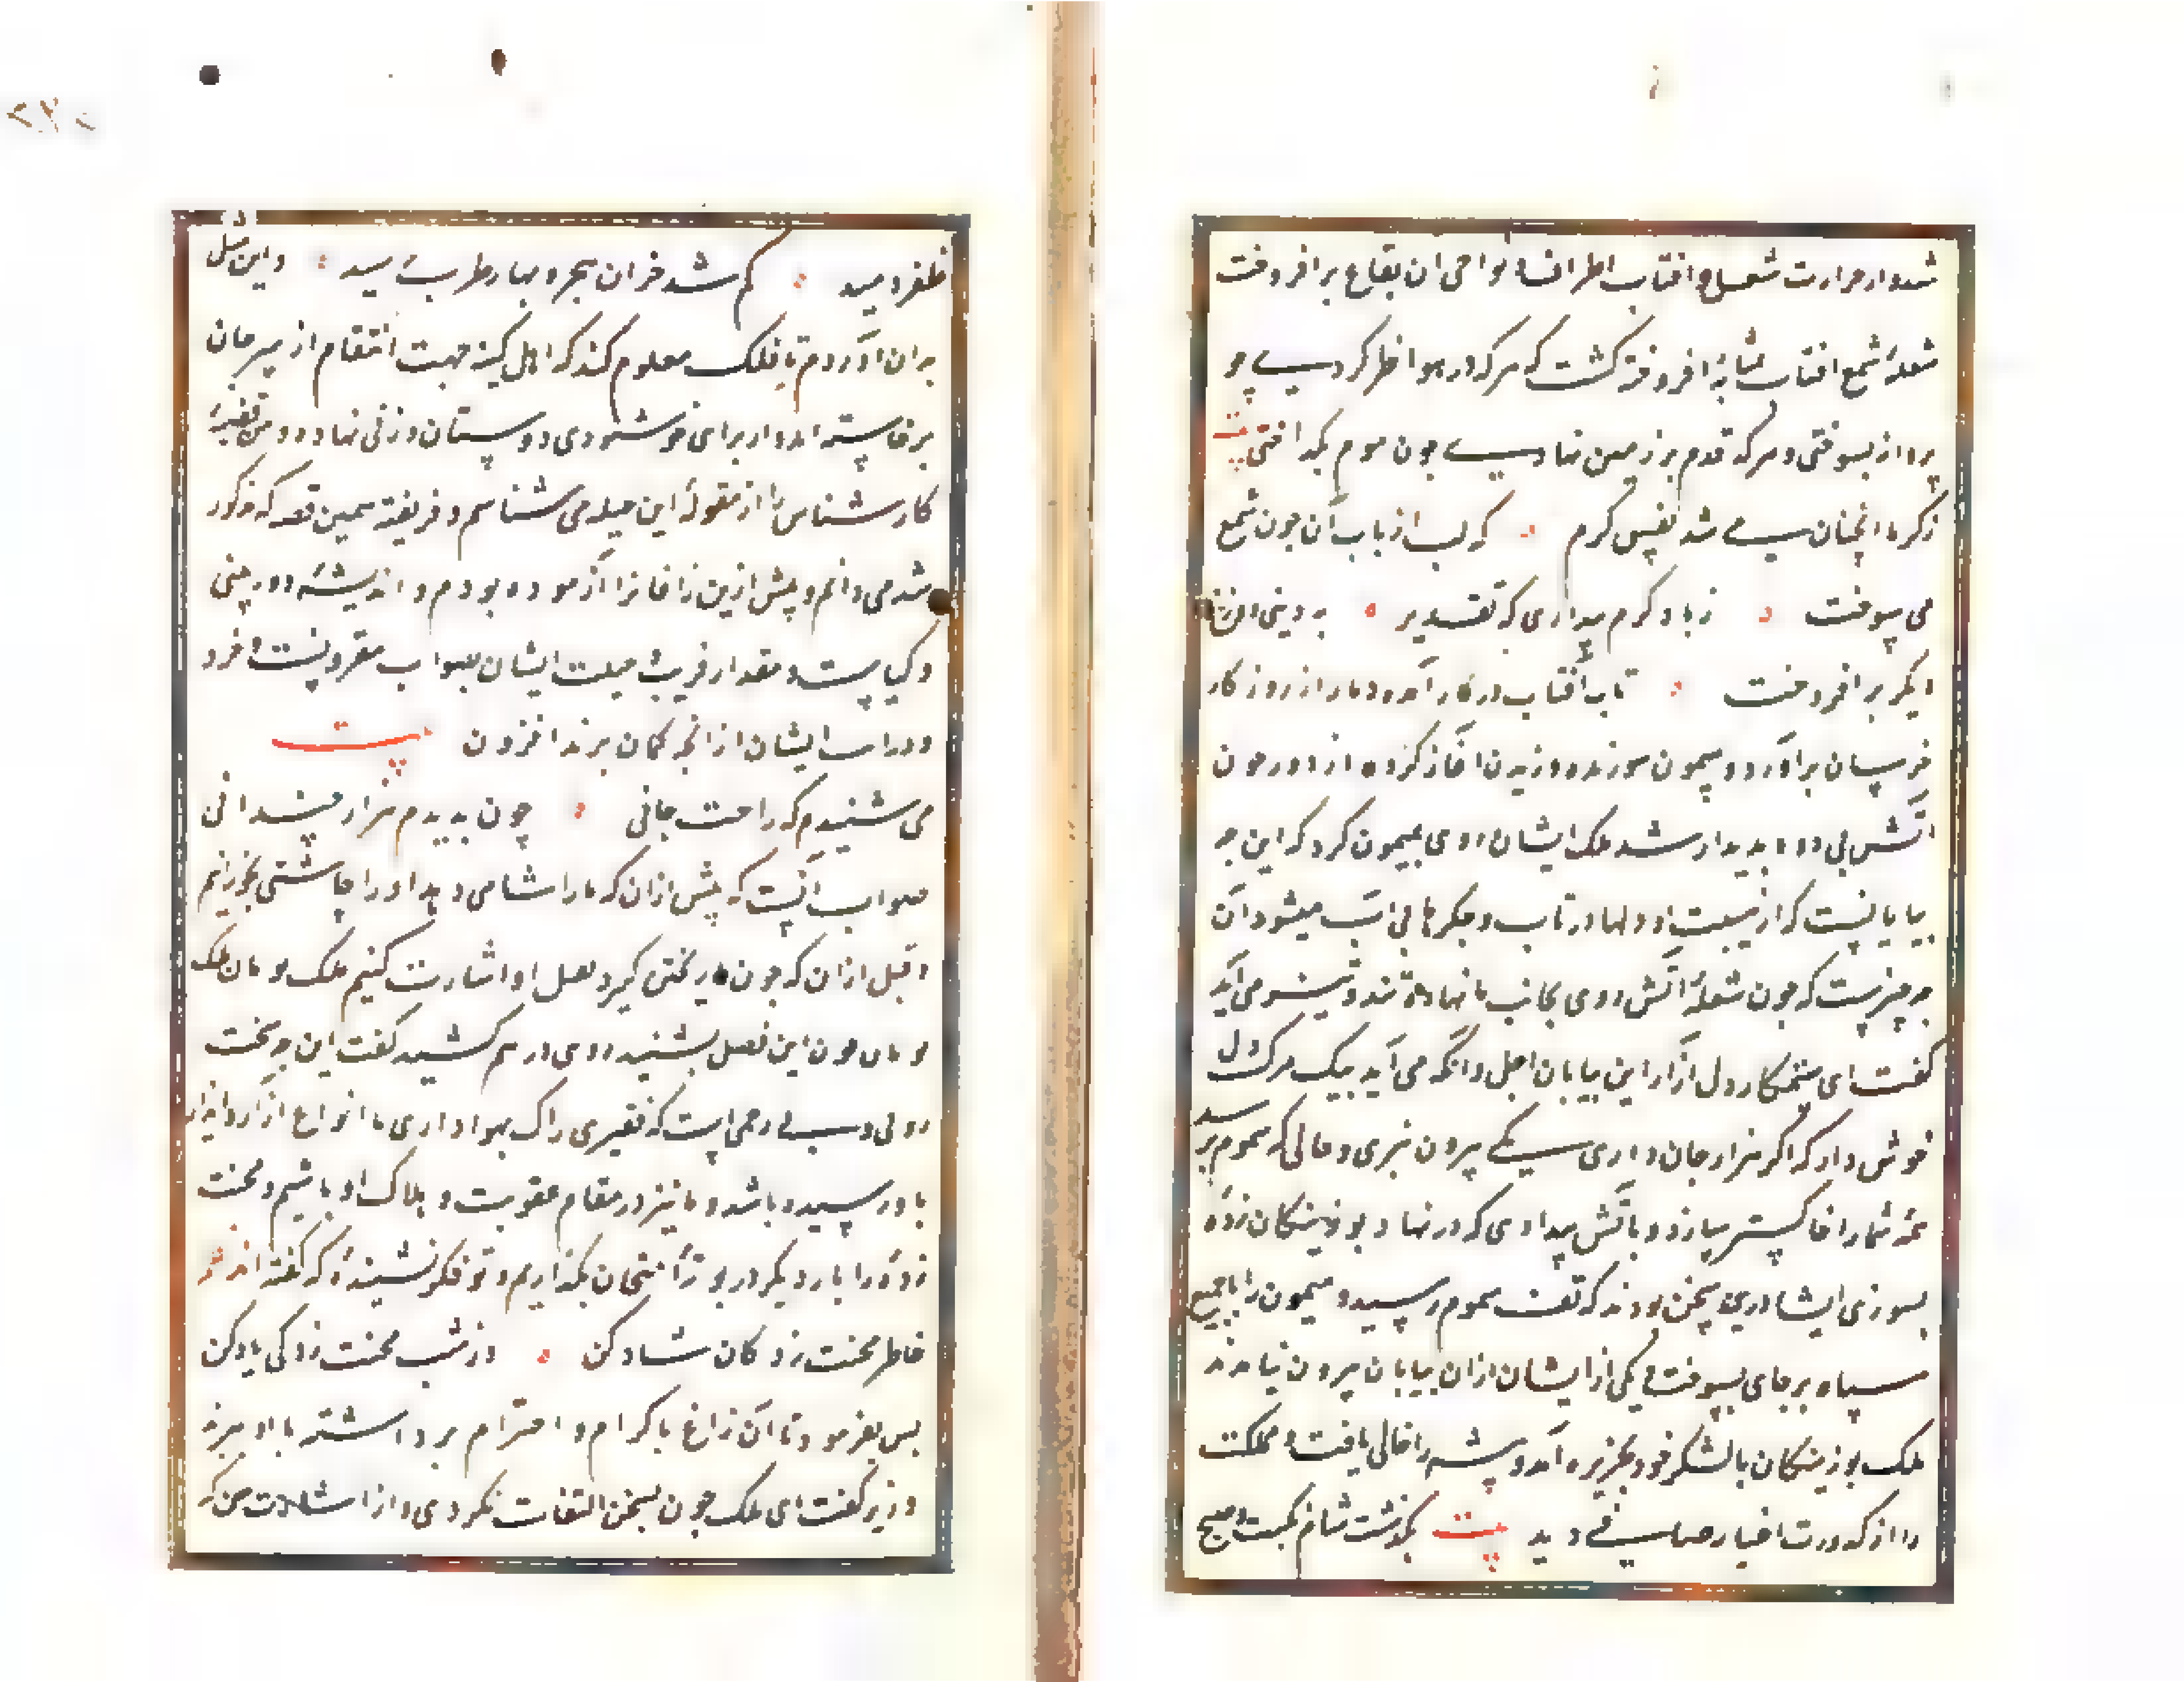 شد و از حرارت شعاع افتاب اطراف و نواحی ان بقاع بر افروخت
شعلهٔ شمع افتاب بمثابهٔ افروخته کشت که مرکه در هوا نظر کردی چو
پروانه بسوختی و هرکه قدم بر زمین نهادی چون موم بکداختی بیت
ز کرما انچنان شد نفس کرم که لب از باب آن چون شمع
می سوخت ز باد کرم پنداری که تقدیر
دیکر بر افروخت تاب آفتاب در کار آمد و دمار از روزکار
خرسان برآورد و سموم سوزنده وزیدن آغاز کرده از دور چون
اتش بی دود پدیدار شد ملک ایشان روی بمیمون کرد که این چه
بیابانیست که از هیبت او دلها در تاب و جکرها بی آب میشود آن
چه چیزیست که چون شعلهٔ اتش روی بجانب ما نهاده تند و تیز می آید
کفت ای ستمکار دل آزار این بیابان اجل و انکه می آید پیک مرکست دل
خوش دار که اکر هزار جان داری یکی بیرون نبری و حالی که سموم برسد
همه شما را خاکستر سازد و باتش بیدادی که در نهاد بوزینکان زدهٔ
بسوزی ایشان درین سخن بودند که تف سموم رسید و میمون را با جمیع
سپاه بر جای بسوخت و یکی از ایشان از ان بیابان بیرون نیامدند
ملک بوزینکان با لشکر خود بجزیره آمد و بیشه را خالی یافت و مملکت
را از کدورت اغیار صافی دید بیت بکذشت شام نکبت و صبح
ظفر دمید کم شد خزان هجر و بهار طرب رسید و این مثل
بدان اوردم تا ملک معلوم کند که اهل کینه جهت انتقام از سر جان
برخاسته اند و از برای خوشنودی دوستان وزنی نهاده و من قضیهٔ
کارشناس را از مقولهٔ این حیله می شناسم و فریفته همین قصه که مذکور
شد می دانم و پیش ازین زاغانرا آزموده بودم و اندیشهٔ دوربینی
و کیاست و مقدار فریب و حیلت ایشان بصواب مقرونست و خرد
و درایت ایشان از انچه کمان برند افزون بیت
می شنیدم که راحت جانی چون بدیدم هزار چندانی
صواب آنست که پیش از ان که ما را شامی دهد او را چاشتی بخورانیم
و قبل از ان که خون ما ریختن کیرد بقتل او اشارت کنیم ملک بومان
بومان چون این فصل بشنید روی در هم کشید کفت این چه سخت
دلی و بی رحمی است که فقیری را که بهواداری ما انواع آزار و ایذا
بدو رسیده باشد و ما نیز در مقام عقوبت و هلاک او باشیم و محنت
زدهٔ را بار دیکر در بوتهٔ امتحان بکذاریم و تو مکر نشنیدهٔ که کفته اند شعر
خاطر محنت زدکان شاد کن وز شب محنت زدکی یاد کن
پس بفرمود تا آن زاغ باکرام و احترام برداشته با او ببرند
وزیر کفت ای ملک چون بسخن التفات نکردی و از اشارت من که